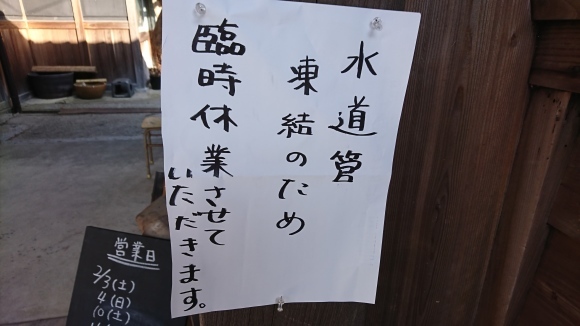 水道管
凍結のため
臨時休業させて
いただきます。
営業日
2/3(土)
4(日)
10(土)